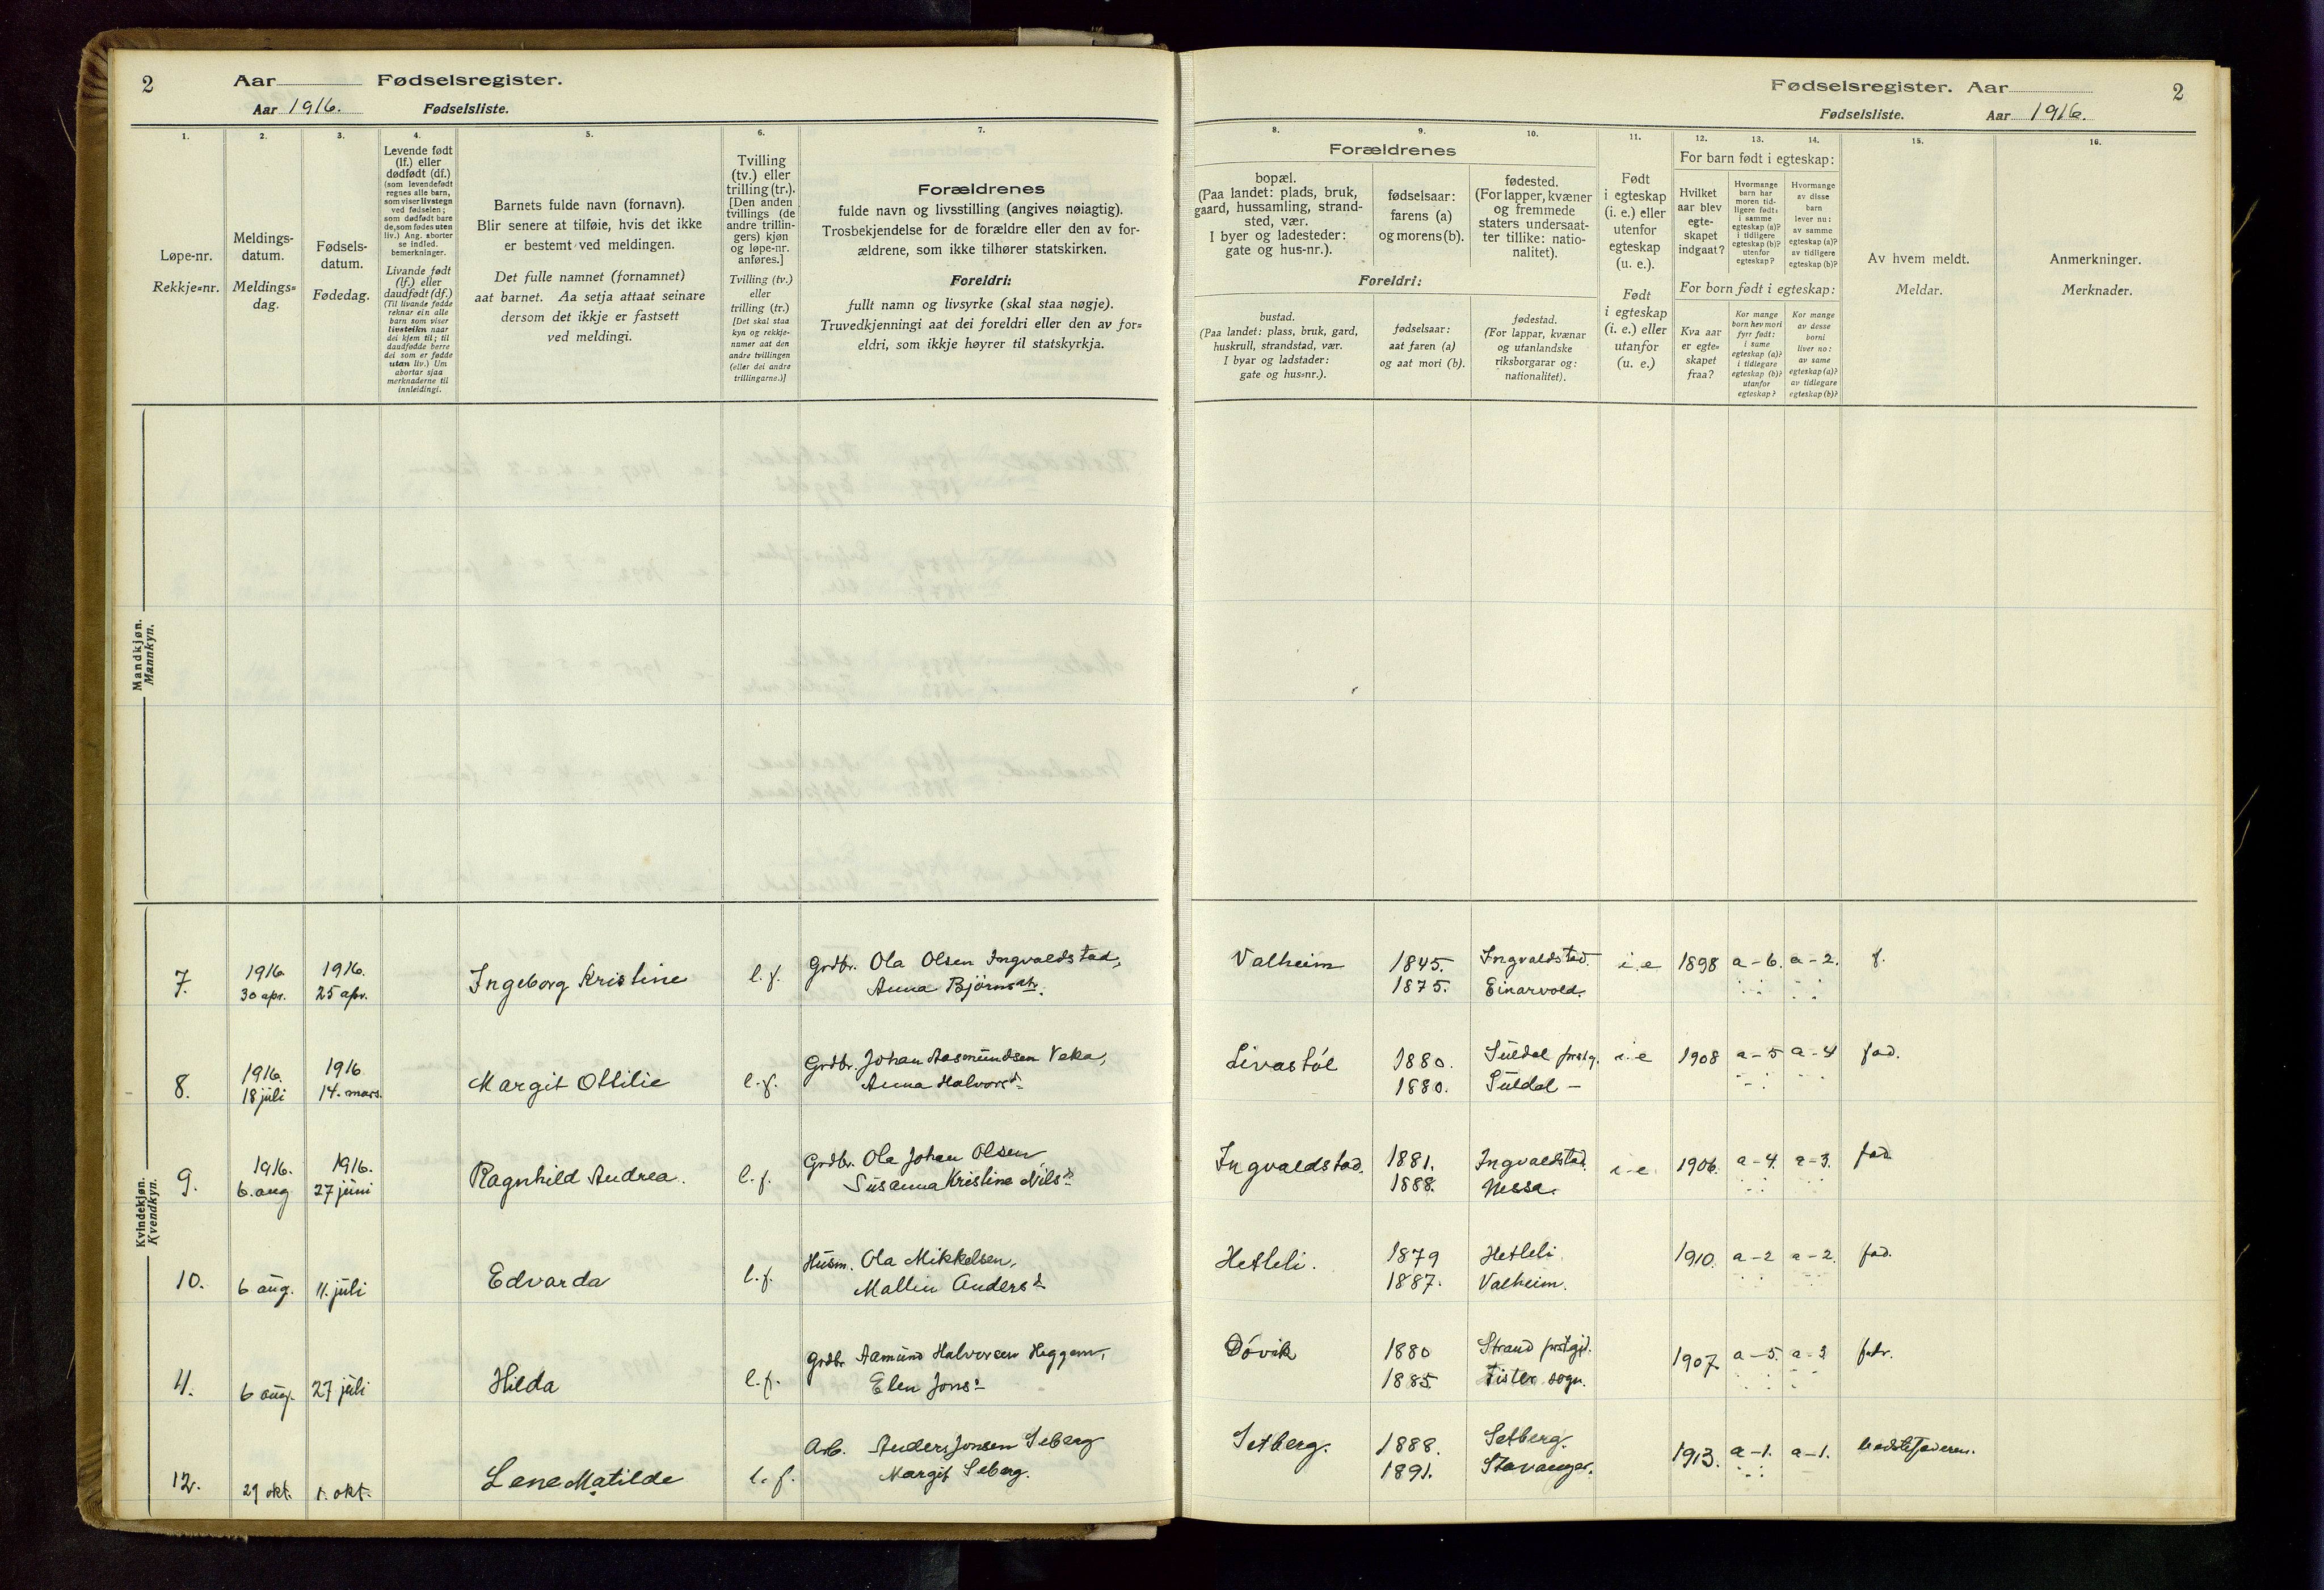 2 Aar Fødselsregister.
Aar 1916. Fødselsliste.
1. 2. 3. 4. 5. 6. 7.
Løpe-nr.
Rekkje=nr.
Meldings-
datum.
Meldings=
dag.
Fødsels-
datum.
Fødedag.
Levende født
(lf.) eller
dødfødt (df.)
(som levendefødt
regnes alle barn,
som viser livstegn
ved fødselen;
som dødfødt bare
de, som fødes uten
liv.) Ang. aborter
se indled.
bemerkninger.
Livande født
(lf.) eller
daudfødt (df.)
(Til livande fødde
reknar ein alle
barn som viser
livsteikn naar
dei kjem til; til
daudfødde berre
dei som er fødde
utan liv.) Um
abortar sjaa
merknaderne til
innleidingi.
Barnets fulde navn (fornavn).
Blir senere at tilføie, hvis det ikke
er bestemt ved meldingen.
Det fulle namnet (fornamnet)
aat barnet. Aa setja attaat seinare
dersom det ikkje er fastsett
ved meldingi.
Tvilling
(tv.) eller
trilling (tr.).
[Den anden
tvillings (de
andre trillin-
gers) kjøn
og løpe-nr.
anføres.]
Tvilling (tv.)
eller
trilling (tr.)
[Det skal staa
kyn og rekkje-
numer aat den
andre tvillingen
(eller dei andre
trillingarne.)]
Forældrenes
fulde navn og livsstilling (angives nøiagtig).
Trosbekjendelse for de forældre eller den av for-
ældrene, som ikke tilhører statskirken.
Foreldri:
fullt namn og livsyrke (skal staa nøgje).
Truvedkjenningi aat dei foreldri eller den av for=
eldri, som ikkje høyrer til statskyrkja.
Mandkjøn.
Mannkyn.
Kvindekjøn.
Kvendkyn.
7. 1916. 30 apr. 1916. 25 apr. Ingeborg Kristine l.f. Grdbr. Ola Olsen Ingvaldstad,
Anna Björnsdtr.
8. 1916. 18 juli 1916 14. mars. Margit Ottilie l.f. Grdbr. Johan Aasmundsen Veka,
Anna Halvorsd.
9. 1916. 6. aug 1916. 27 juni Ragnhild Andrea. l.f. Grdbr. Ola Johan Olsen
Susanna Kristine Nilsd.
10. 6 aug. 11. juli Edvarda l.f. Husm. Ola Mikkelsen,
Mallin Andersd.
11. 6 aug. 27 juli Hilda l.f. Grdbr Aamund Halvorsen Heggem,
Elen Jonsd.
12. 29 okt. 1. okt. Lene Matilde l.f. Arb. Anders Jonsen Seberg
Margit Seberg.
Fødselsregister. Aar 2
Fødselsliste. Aar 1916.
8. 9. 10. 11. 12. 13. 14. 15. 16.
Forældrenes
bopæl.
(Paa landet: plads, bruk,
gaard, hussamling, strand-
sted, vær.
I byer og ladesteder:
gate og hus-nr.).
fødselsaar:
farens (a)
og morens (b).
fødested.
(For lapper, kvæner
og fremmede
staters undersaat-
ter tillike: natio-
nalitet).
Foreldri:
bustad.
(Paa landet: plass, bruk, gard,
huskrull, strandstad, vær.
I byar og ladstader:
gate og hus=nr.).
fødselsaar:
aat faren (a)
og aat mori (b).
fødestad.
(For lappar, kvænar
og utanlandske
riksborgarar og:
nationalitet).
Født
i egteskap
(i. e.) eller
utenfor
egteskap
(u. e.).
Født
i egteskap
(i. e.) eller
utanfor
(u. e.)
For barn født i egteskap:
Hvilket
aar blev
egte-
skapet
indgaat?
Hvormange
barn har
moren tid-
ligere født:
i samme
egteskap (a)?
i tidligere
egteskap (b)?
utenfor
egteskap?
Hvormange
av disse
barn
lever nu:
av samme
egteskap (a)?
av tidligere
egteskap (b)?
For born født i egteskap:
Kva aar
er egte=
skapet
fraa?
Kor mange
born hev mori
fyrr født:
i same
egteskap (a)?
i tidlegare
egteskap (b)?
utanfor
egteskap?
Kor mange
av desse
borni
liver no:
av same
egteskap (a)?
av tidlegare
egteskap (b)?
Av hvem meldt.
Meldar.
Anmerkninger.
Merknader.
Valheim 1845. Ingvaldstad. i.e 1898 a-6. a-2. f.
1875. Einarvold.
Livastöl 1880. Suldal prstg. i.e 1908 a-5 a-4 fad.
1880. Suldal —
Ingvaldstad. 1881. Ingvaldstad. i-e. 1906. a-4. a-3. fad
1888. Nessa.
Hetleli. 1879 Hetleli. 1910. a-2 a-2. fad.
1887. Valheim.
Dövik 1880 Strand prstgjt. 1907. a-5. fadr.
1885. Fister sogn.
Setberg. 1888. Setberg. 1913. a-1. a-1. bedstefaderen.
1891. Stavanger.